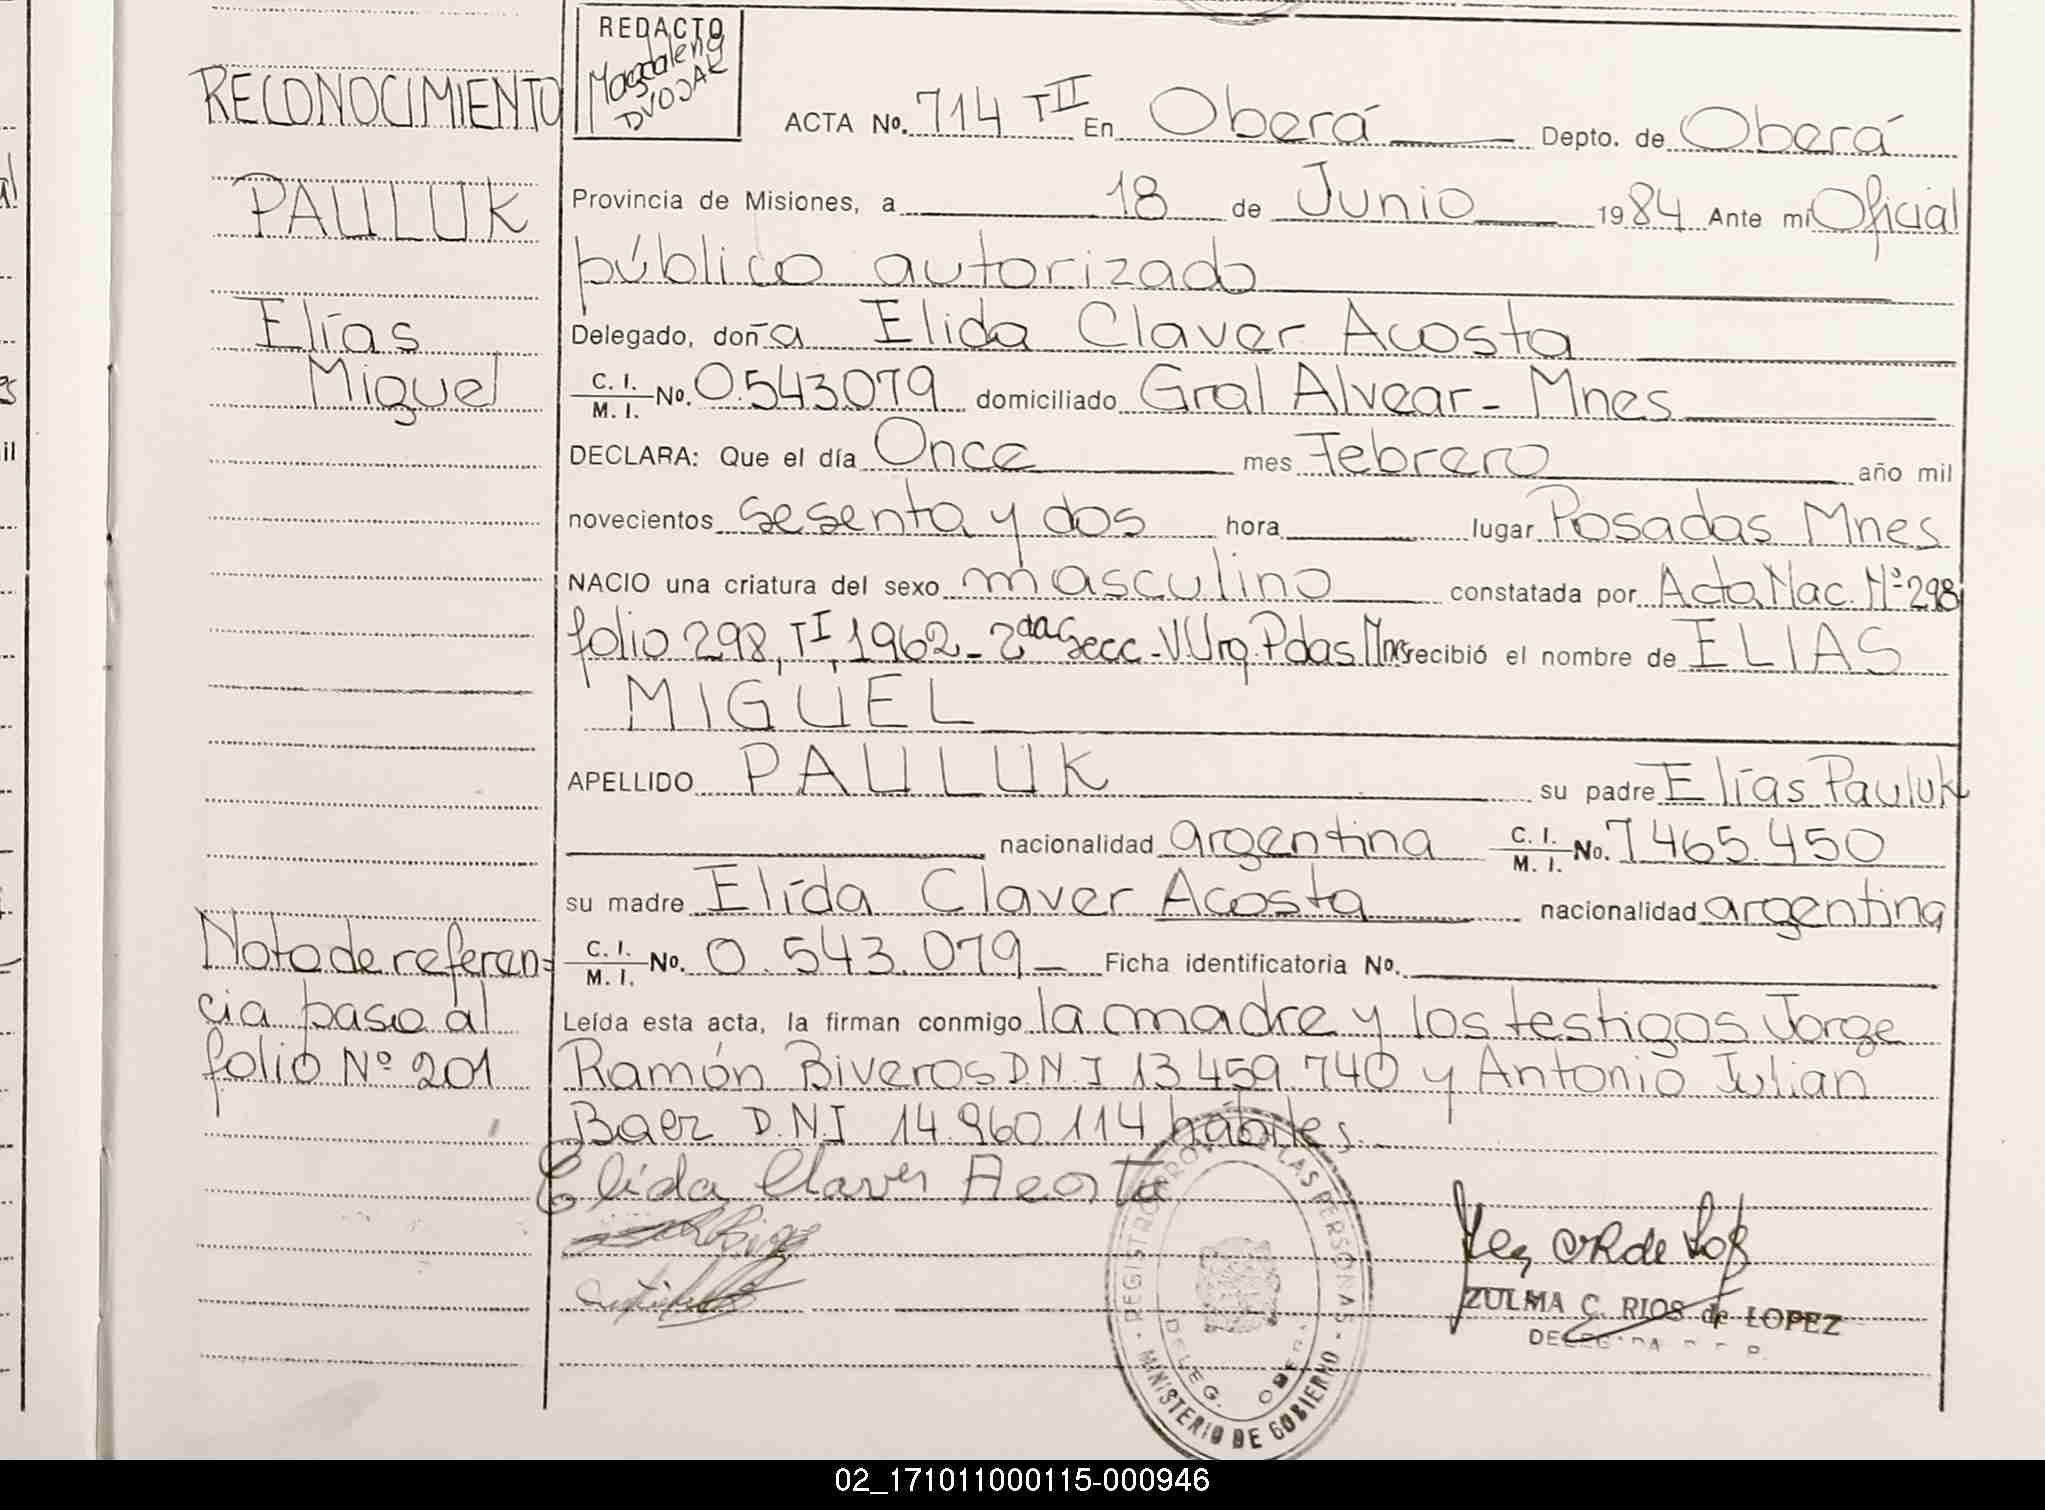 RECONOCIMIENTO
PAULUK
Elías
Miguel
Nota de referen=
cia paso al
folio Nº 201
REDACTO
Magdalena
DVOJAK
ACTA No. 714 TII En Oberá Depto. de Oberá
Provincia de Misiones, a 18 de Junio 1984 Ante mi Oficial
público autorizado
Delegado, doña Elida Claver Acosta
C. I. / M. I. No. 0.543.079 domiciliado Gral Alvear - Mnes
DECLARA: Que el día Once mes Febrero año mil
novecientos sesenta y dos hora lugar Posadas Mnes
NACIO una criatura del sexo masculino constatada por Acta Nac. Nº 298
folio 298, TI, 1962 - 2da Secc - V. Urq. Pdas Mnes recibió el nombre de ELIAS
MIGUEL
APELLIDO PAULUK su padre Elías Pauluk
nacionalidad argentina C. I. / M. I. No. 7.465.450
su madre Elída Claver Acosta nacionalidad argentina
C. I. / M. I. No. 0.543.079 Ficha identificatoria No.
Leída esta acta, la firman conmigo la madre y los testigos Jorge
Ramón Biveros D.N.I 13.459.740 y Antonio Julian
Baez D.N.I 14.960.114 hábiles.
Elida Claver Acosta
REGISTRO LAS PERSONAS
MINISTERIO DE GOBIERNO
DELEG. OBERA
ZULMA C. RIOS de LOPEZ
DELEGADA
02_171011000115-000946